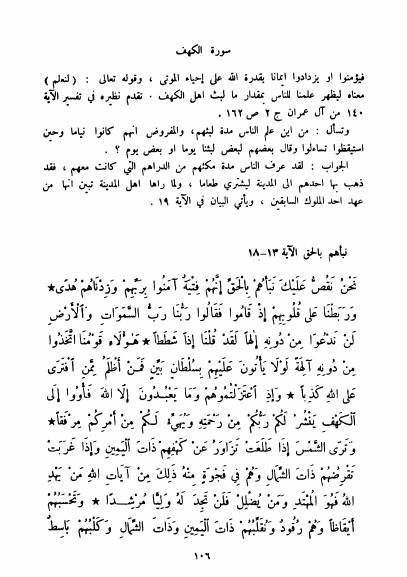 سورة الكهف
فيؤمنوا او يزدادوا ايمانا بقدرة الله على إحياء الموتى ، وقوله تعالى : (لنعلم)
معناه ليظهر علمنا للناس بمقدار ما لبث اهل الكهف . تقدم نظيره في تفسير الآية
١٤٠ من آل عمران ج ٢ ص ١٦٢ .
وتسأل : من اين علم الناس مدة لبثهم، والمفروض انهم كانوا نياما وحين
استيقظوا تساءلوا وقال بعضهم لبعض لبثنا يوما او بعض يوم ؟ .
الجواب : لقد عرف الناس مدة مكثهم من الدراهم التي كانت معهم ، فقد
ذهب بها احدهم الى المدينة ليشتري طعاما ، ولما رآها اهل المدينة تبين انها من
عهد احد الملوك السابقين ، ويأتي البيان في الآية ١٩ .
نبأهم بالحق الآية ١٣-١٨
نَحْنُ نَقُصُّ عَلَيْكَ نَبَأَهُمْ بِالْحَقِّ إِنَّهُمْ فِتْيَةٌ آمَنُوا بِرَبِّهِمْ وَزِدْنَاهُمْ هُدًى ★
وَرَبَطْنَا عَلَى قُلُوبِهِمْ إِذْ قَامُوا فَقَالُوا رَبُّنَا رَبُّ السَّمَوَاتِ وَالْأَرْضِ
لَنْ نَدْعُوَا مِنْ دُونِهِ إِلٰهاً لَقَدْ قُلْنَا إِذاً شَطَطاً ★ هَؤُلَاءِ قَوْمُنَا اتَّخَذُوا
مِنْ دُونِهِ آلِهَةً لَوْلَا يَأْتُونَ عَلَيْهِمْ بِسُلْطَانٍ بَيِّنٍ فَمَنْ أَظْلَمُ مِمَّنِ افْتَرَى
عَلَى اللهِ كَذِباً ★ وَإِذِ اعْتَزَلْتُمُوهُمْ وَمَا يَعْبُدُونَ إِلَّا اللهَ فَأْوُوا إِلَى
الْكَهْفِ يَنْشُرْ لَكُمْ رَبُّكُمْ مِنْ رَحْمَتِهِ وَيُهَيِّءْ لَكُمْ مِنْ أَمْرِكُمْ مِرْفَقاً ★
وَتَرَى الشَّمْسَ إِذَا طَلَعَتْ تَزَاوَرُ عَنْ كَهْفِهِمْ ذَاتَ الْيَمِينِ وَإِذَا غَرَبَتْ
تَقْرِضُهُمْ ذَاتَ الشِّمَالِ وَهُمْ فِي فَجْوَةٍ مِنْهُ ذَلِكَ مِنْ آيَاتِ اللهِ مَنْ يَهْدِ
اللهُ فَهُوَ الْمُهْتَدِ وَمَنْ يُضْلِلْ فَلَنْ تَجِدَ لَهُ وَلِيًّا مُرْشِداً ★ وَتَحْسَبُهُمْ
أَيْقَاظاً وَهُمْ رُقُودٌ وَنُقَلِّبُهُمْ ذَاتَ الْيَمِينِ وَذَاتَ الشِّمَالِ وَكَلْبُهُمْ بَاسِطٌ
١٠٦